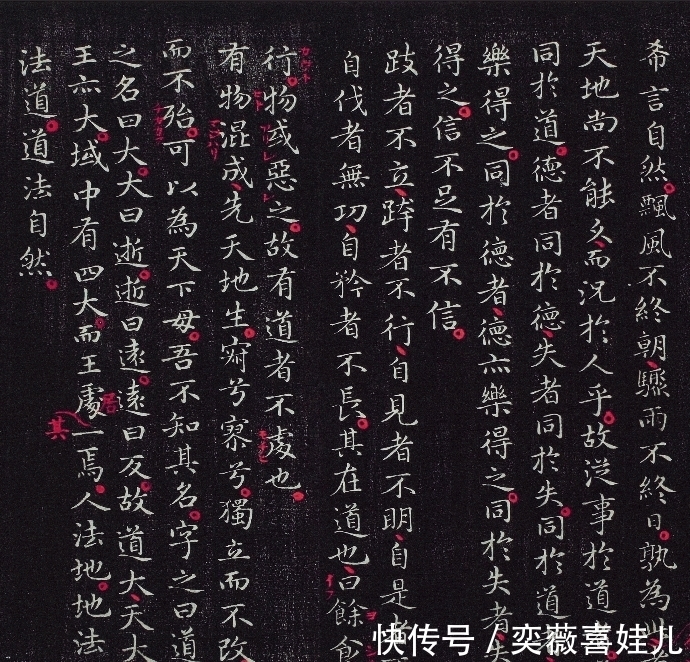 希言自然飄風不終朝驟雨不終日孰為
天地尚不能久而況於人乎故從事於道
同於道德者同於德失者同於失同於道
樂得之同於德者德亦樂得之同於失者
得之信不足有不信
跂者不立跨者不行自見者不明自是
自伐者無功自矜者不長其在道也曰餘食
行物或惡之故有道者不處也
有物混成先天地生寂兮寥兮獨立而不改
而不殆可以為天下母吾不知其名字之曰道
之名曰大大曰逝逝曰遠遠曰反故道大天大
王亦大域中有四大而王處一焉人法地地法
居
其
法道道法自然
快传号 / 奕薇喜娃儿